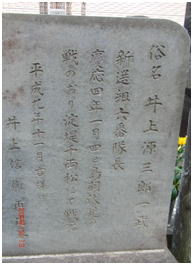 俗名 井上源三郎一武
新選組六番隊長
慶応四年一月四日鳥羽伏見
戦の折り淀堤千両松にて戦
平成九年十一月吉
井上信衛